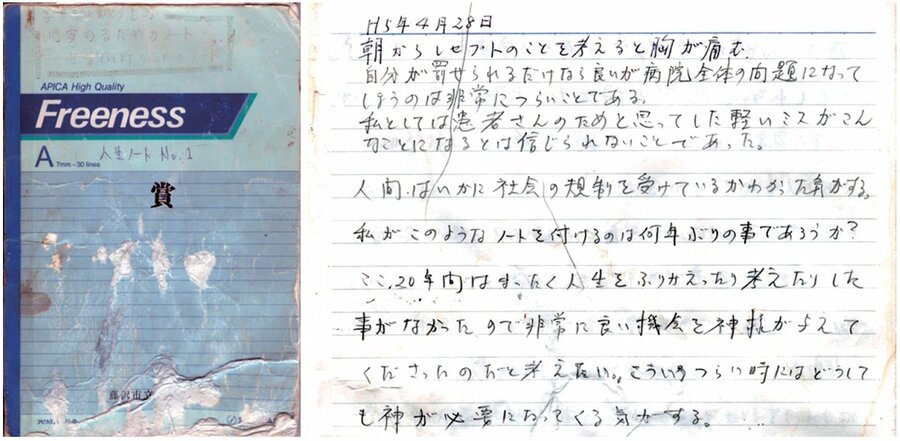 心安めるためのノート
APICA High Quality
Freeness
A 7mm・30 lines
人生ノート No.1
賞
藤沢市立
H5年4月28日
朝からレセプトのことを考えると胸が痛む.
自分が罰せられるだけなら良いが病院全体の問題になって
しまうのは非常につらいことである。
私としては患者さんのためと思ってした軽いミスがこん
なことになるとは信じられないことであった。
人間はいかに社会の規制を受けているかわかった気がする。
私がこのようなノートを付けるのは何年ぶりの事であろうか?
ここ20年間はまったく人生をふりかえったり考えたりした
事がなかったので非常に良い機会を神様が与えて
くださったのだと考えたい。こういうつらい時にはどうして
も神が必要になってくる気がする。